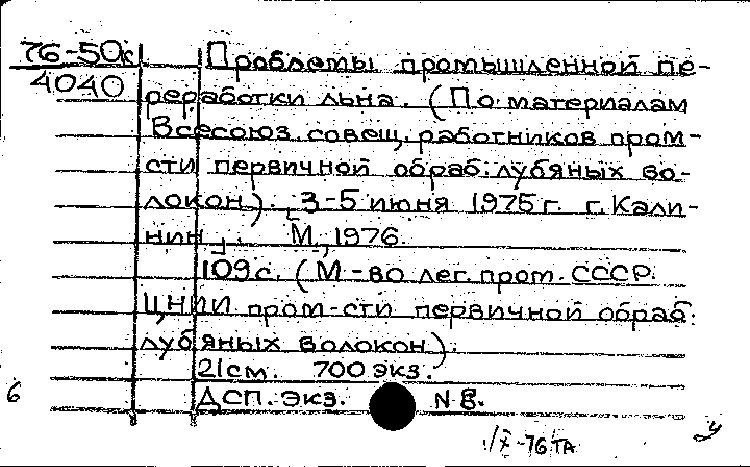 76-50к Проблемы промышленной пе-
4040
реработки льна. (По материалам
Всесоюз. совещ. работников пром-
сти первичной обраб. лубяных во-
локон). [3-5 июня 1975 г. г. Кали-
нин]. М., 1976.
109 с. (М-во лег. пром. СССР.
ЦНИИ пром-сти первичной обраб.
лубяных волокон).
21 см. 700 экз.
6 ДСП. Экз. N 8.
1/X-76 ТА